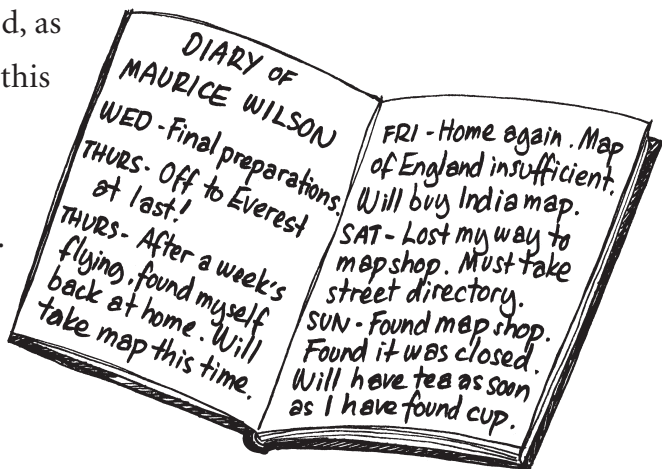 d, as
this
.
DIARY OF
MAURICE WILSON
WED - Final preparations.
THURS - Off to Everest
at last!
THURS - After a week's
flying, found myself
back at home. Will
take map this time.
FRI - Home again. Map
of England insufficient.
Will buy India map.
SAT - Lost my way to
map shop. Must take
street directory.
SUN - Found map shop.
Found it was closed.
Will have tea as soon
as I have found cup.